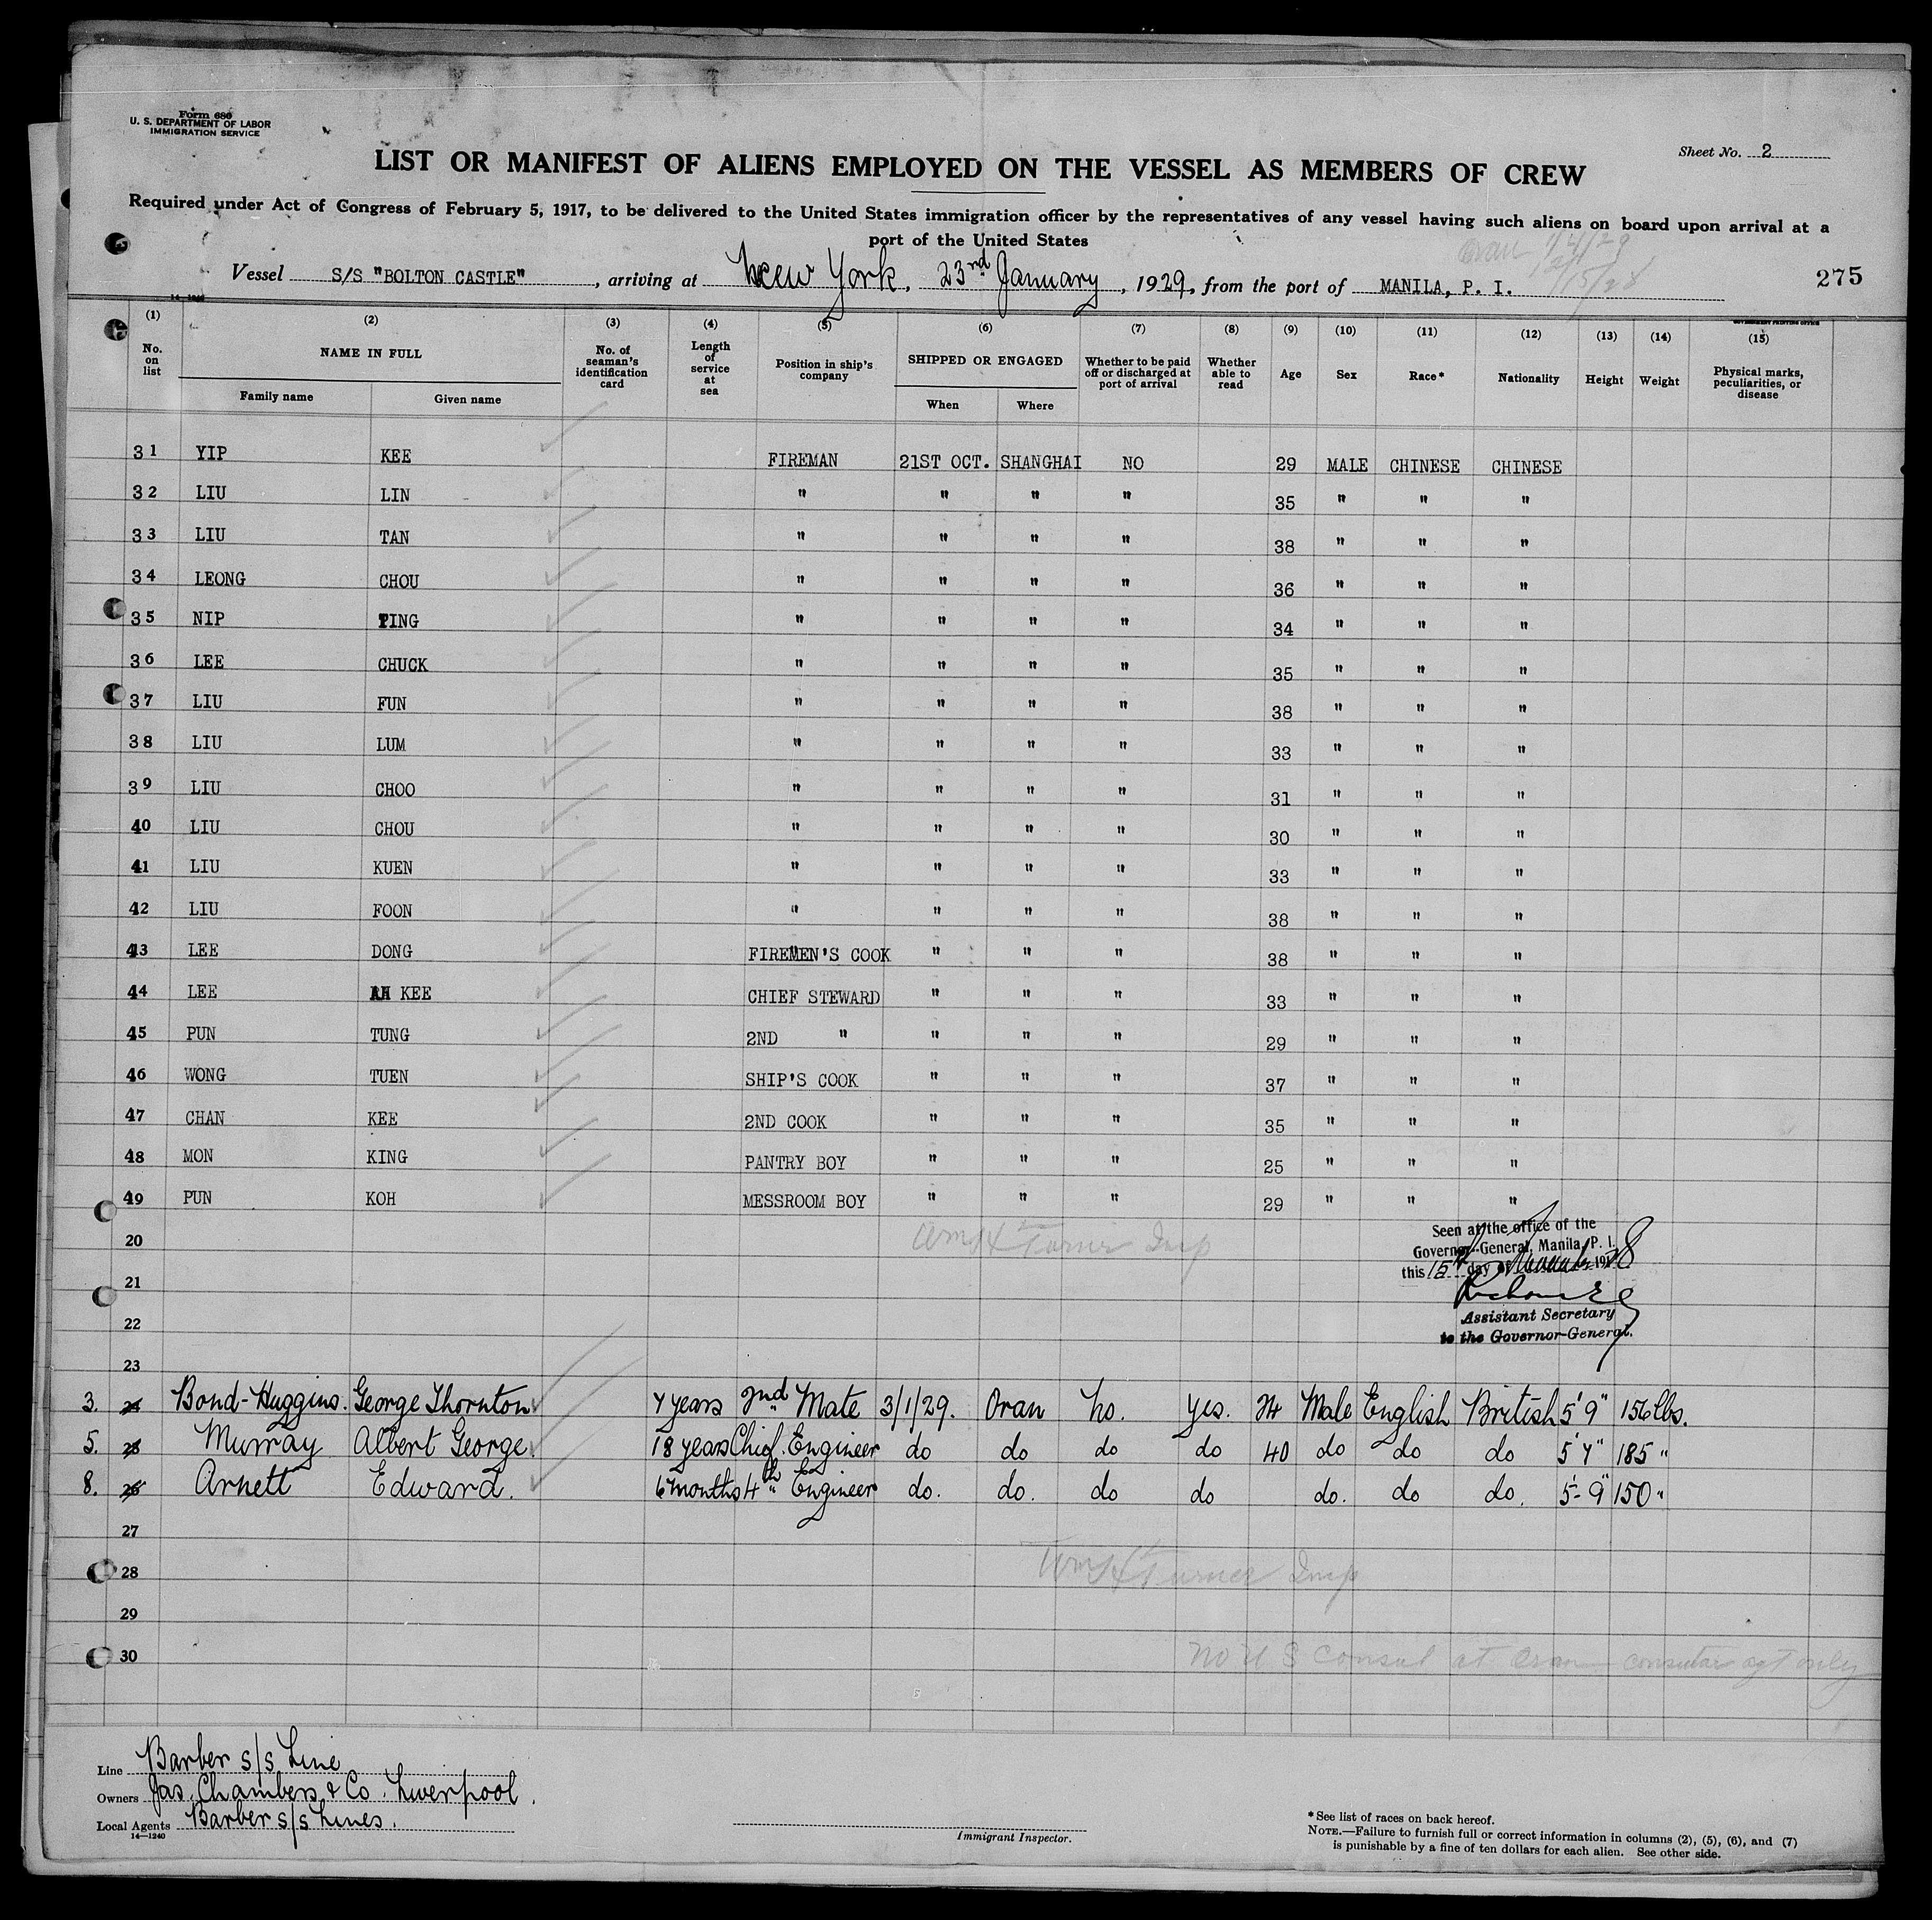 Form 680
U. S. DEPARTMENT OF LABOR
IMMIGRATION SERVICE
Sheet No. 2
LIST OR MANIFEST OF ALIENS EMPLOYED ON THE VESSEL AS MEMBERS OF CREW
Required under Act of Congress of February 5, 1917, to be delivered to the United States immigration officer by the representatives of any vessel having such aliens on board upon arrival at a
port of the United States
Oran 1/4/29
Vessel S/S "BOLTON CASTLE", arriving at New York, 23rd January, 1929, from the port of MANILA, P. I. 275
(1) (2) (3) (4) (5) (6) (7) (8) (9) (10) (11) (12) (13) (14) (15)
No. on list NAME IN FULL No. of seaman's identification card Length of service at sea Position in ship's company SHIPPED OR ENGAGED Whether to be paid off or discharged at port of arrival Whether able to read Age Sex Race* Nationality Height Weight Physical marks, peculiarities, or disease
Family name Given name When Where
31 YIP KEE FIREMAN 21ST OCT. SHANGHAI NO 29 MALE CHINESE CHINESE
32 LIU LIN " " " " 35 " " "
33 LIU TAN " " " " 38 " " "
34 LEONG CHOU " " " " 36 " " "
35 NIP PING " " " " 34 " " "
36 LEE CHUCK " " " " 35 " " "
37 LIU FUN " " " " 38 " " "
38 LIU LUM " " " " 33 " " "
39 LIU CHOO " " " " 31 " " "
40 LIU CHOU " " " " 30 " " "
41 LIU KUEN " " " " 33 " " "
42 LIU FOON " " " " 38 " " "
43 LEE DONG FIREMEN'S COOK " " " 38 " " "
44 LEE AH KEE CHIEF STEWARD " " " 33 " " "
45 PUN TUNG 2ND " " " " 29 " " "
46 WONG TUEN SHIP'S COOK " " " 37 " " "
47 CHAN KEE 2ND COOK " " " 35 " " "
48 MON KING PANTRY BOY " " " 25 " " "
49 PUN KOH MESSROOM BOY " " " 29 " " "
20 Wm H Turner Insp
21
22
23
Seen at the office of the
Governor-General, Manila, P. I.
this 15th day of November 1928
Assistant Secretary
to the Governor-General.
3. 24 Bond-Huggins. George Thornton 7 years 2nd Mate 3/1/29. Oran No. yes. 24 Male English British 5' 9" 156 lbs.
5. 25 Murray Albert George. 18 years Chief Engineer do do do do 40 do do do 5' 7" 185 "
8. 26 Arnett Edward. 6 months 4th Engineer do. do. do do do. do do. 5'-9" 150 "
27
28 Wm H Turner Insp
29
30 No U S Consul at Oran - consular agt only
Line Barber s/s Line
Owners Jas. Chambers & Co. Liverpool.
Local Agents Barber s/s Lines.
14—1240
Immigrant Inspector.
*See list of races on back hereof.
NOTE.—Failure to furnish full or correct information in columns (2), (5), (6), and (7)
is punishable by a fine of ten dollars for each alien. See other side.